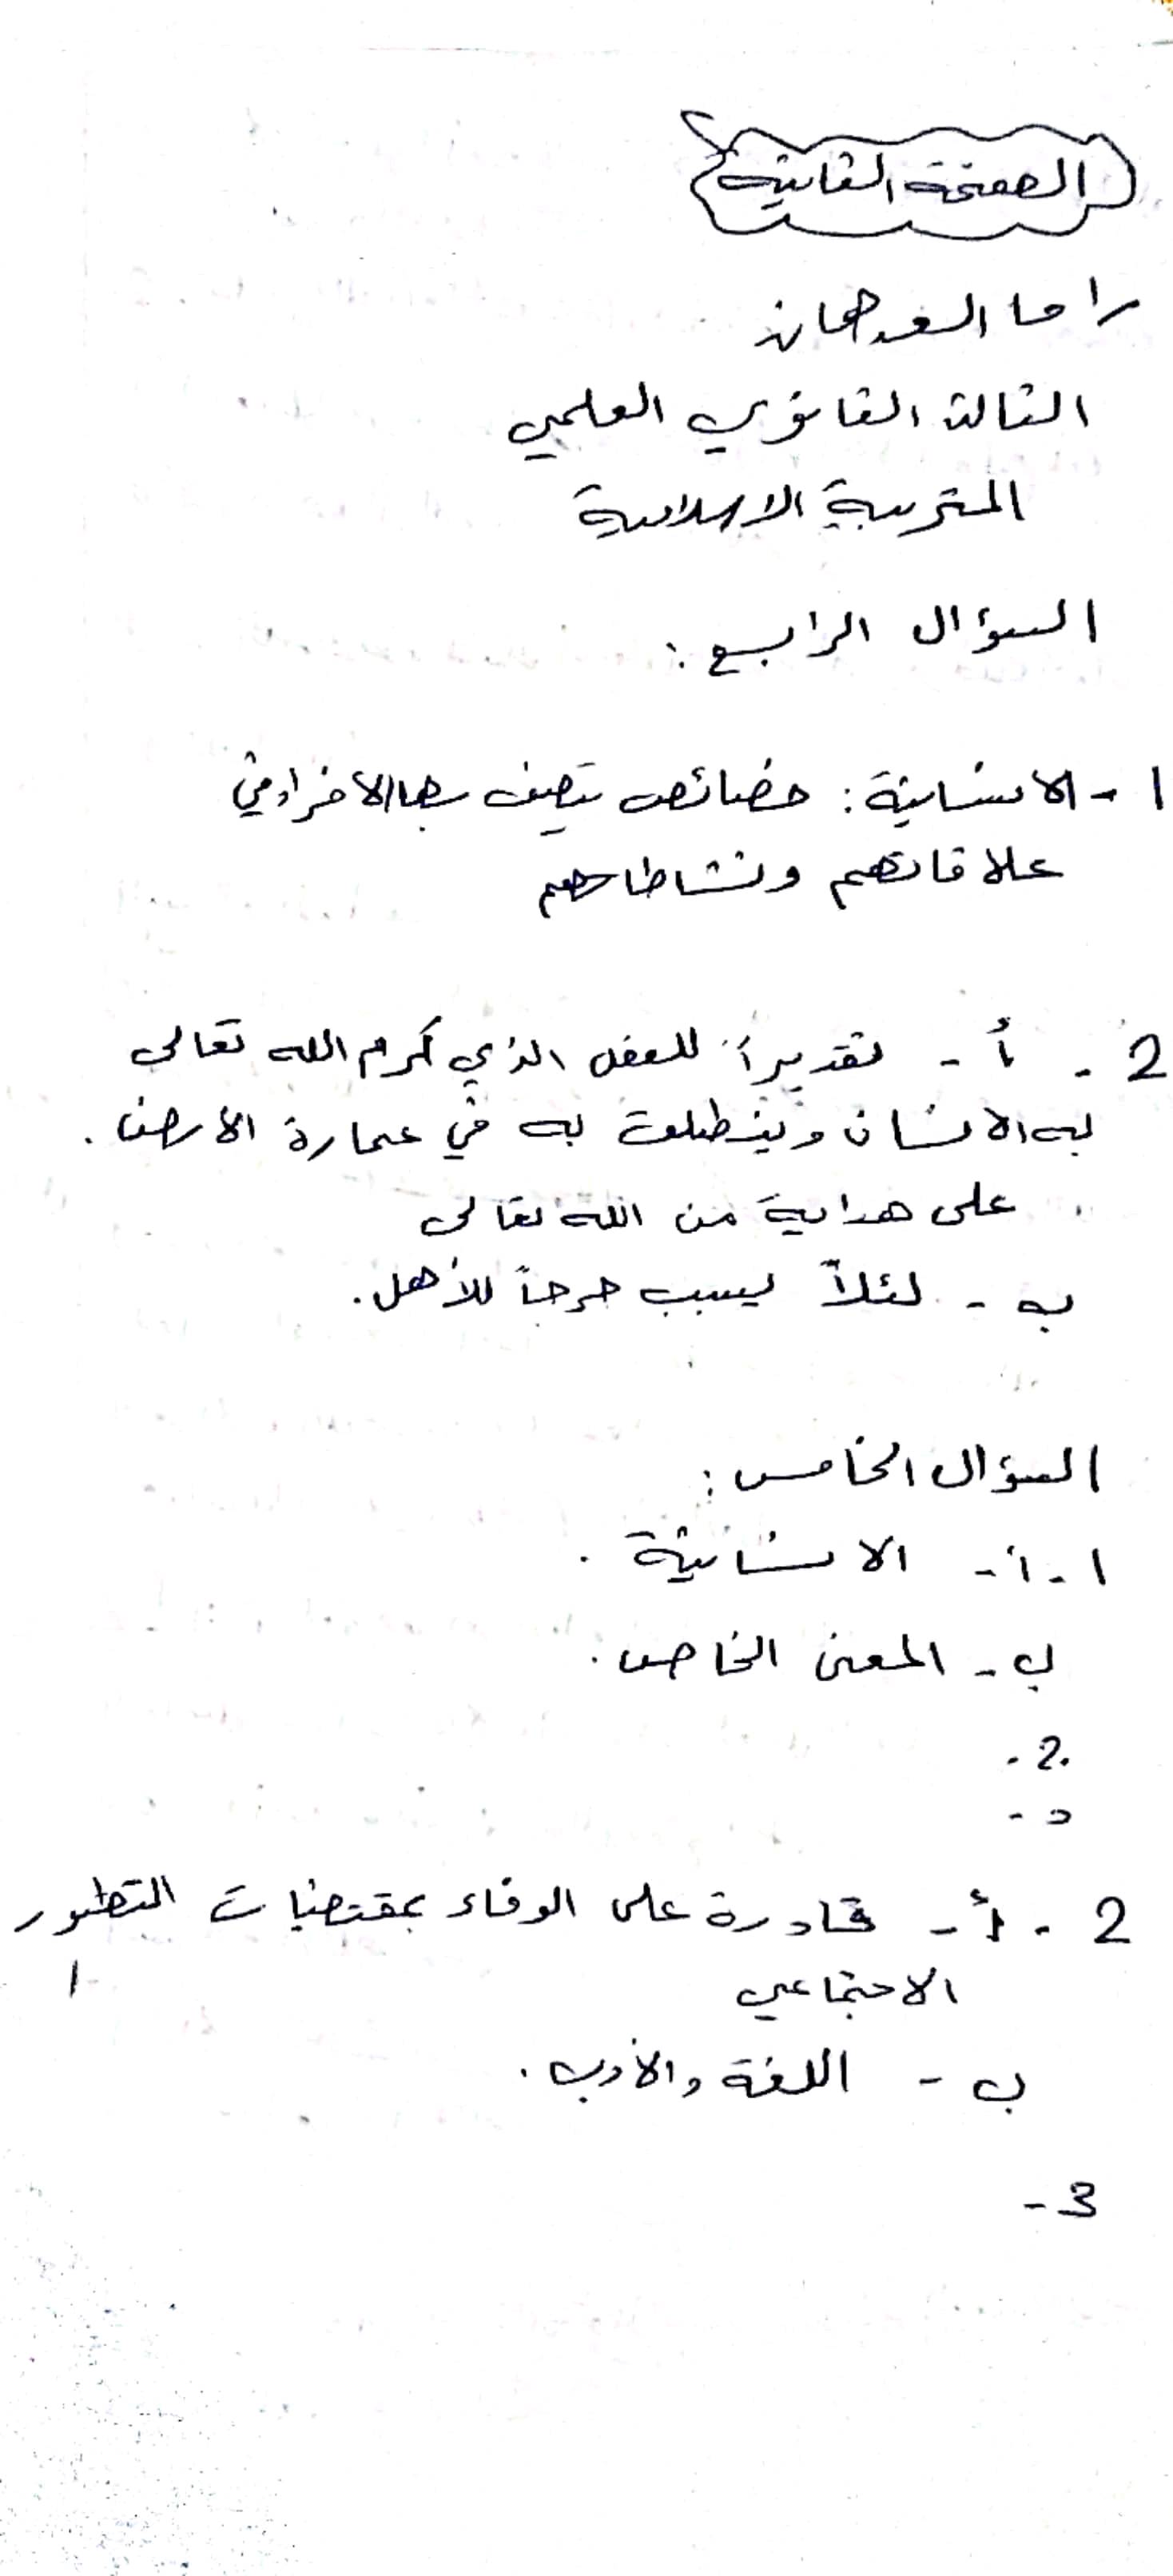 الصفحة الثانية
راما السرحان
الثالث الثانوي العلمي
التربية الاسلامية
السؤال الرابع :
1 - الانسانية : خصائص تتصف بها الافراد في
علاقاتهم ونشاطاتهم
2 - أ - تقديراً للعقل الذي كرم الله تعالى
به الانسان وينطلق به في عمارة الارض .
على هداية من الله تعالى
ب - لئلاً يسبب حرجاً للأهل .
السؤال الخامس :
1 - أ - الانسانية .
ب - المعنى الخاص .
2 -
د -
2 - أ - قادرة على الوفاء بمقتضيات التطور
الاجتماعي
ب - اللغة والأدب .
3 -